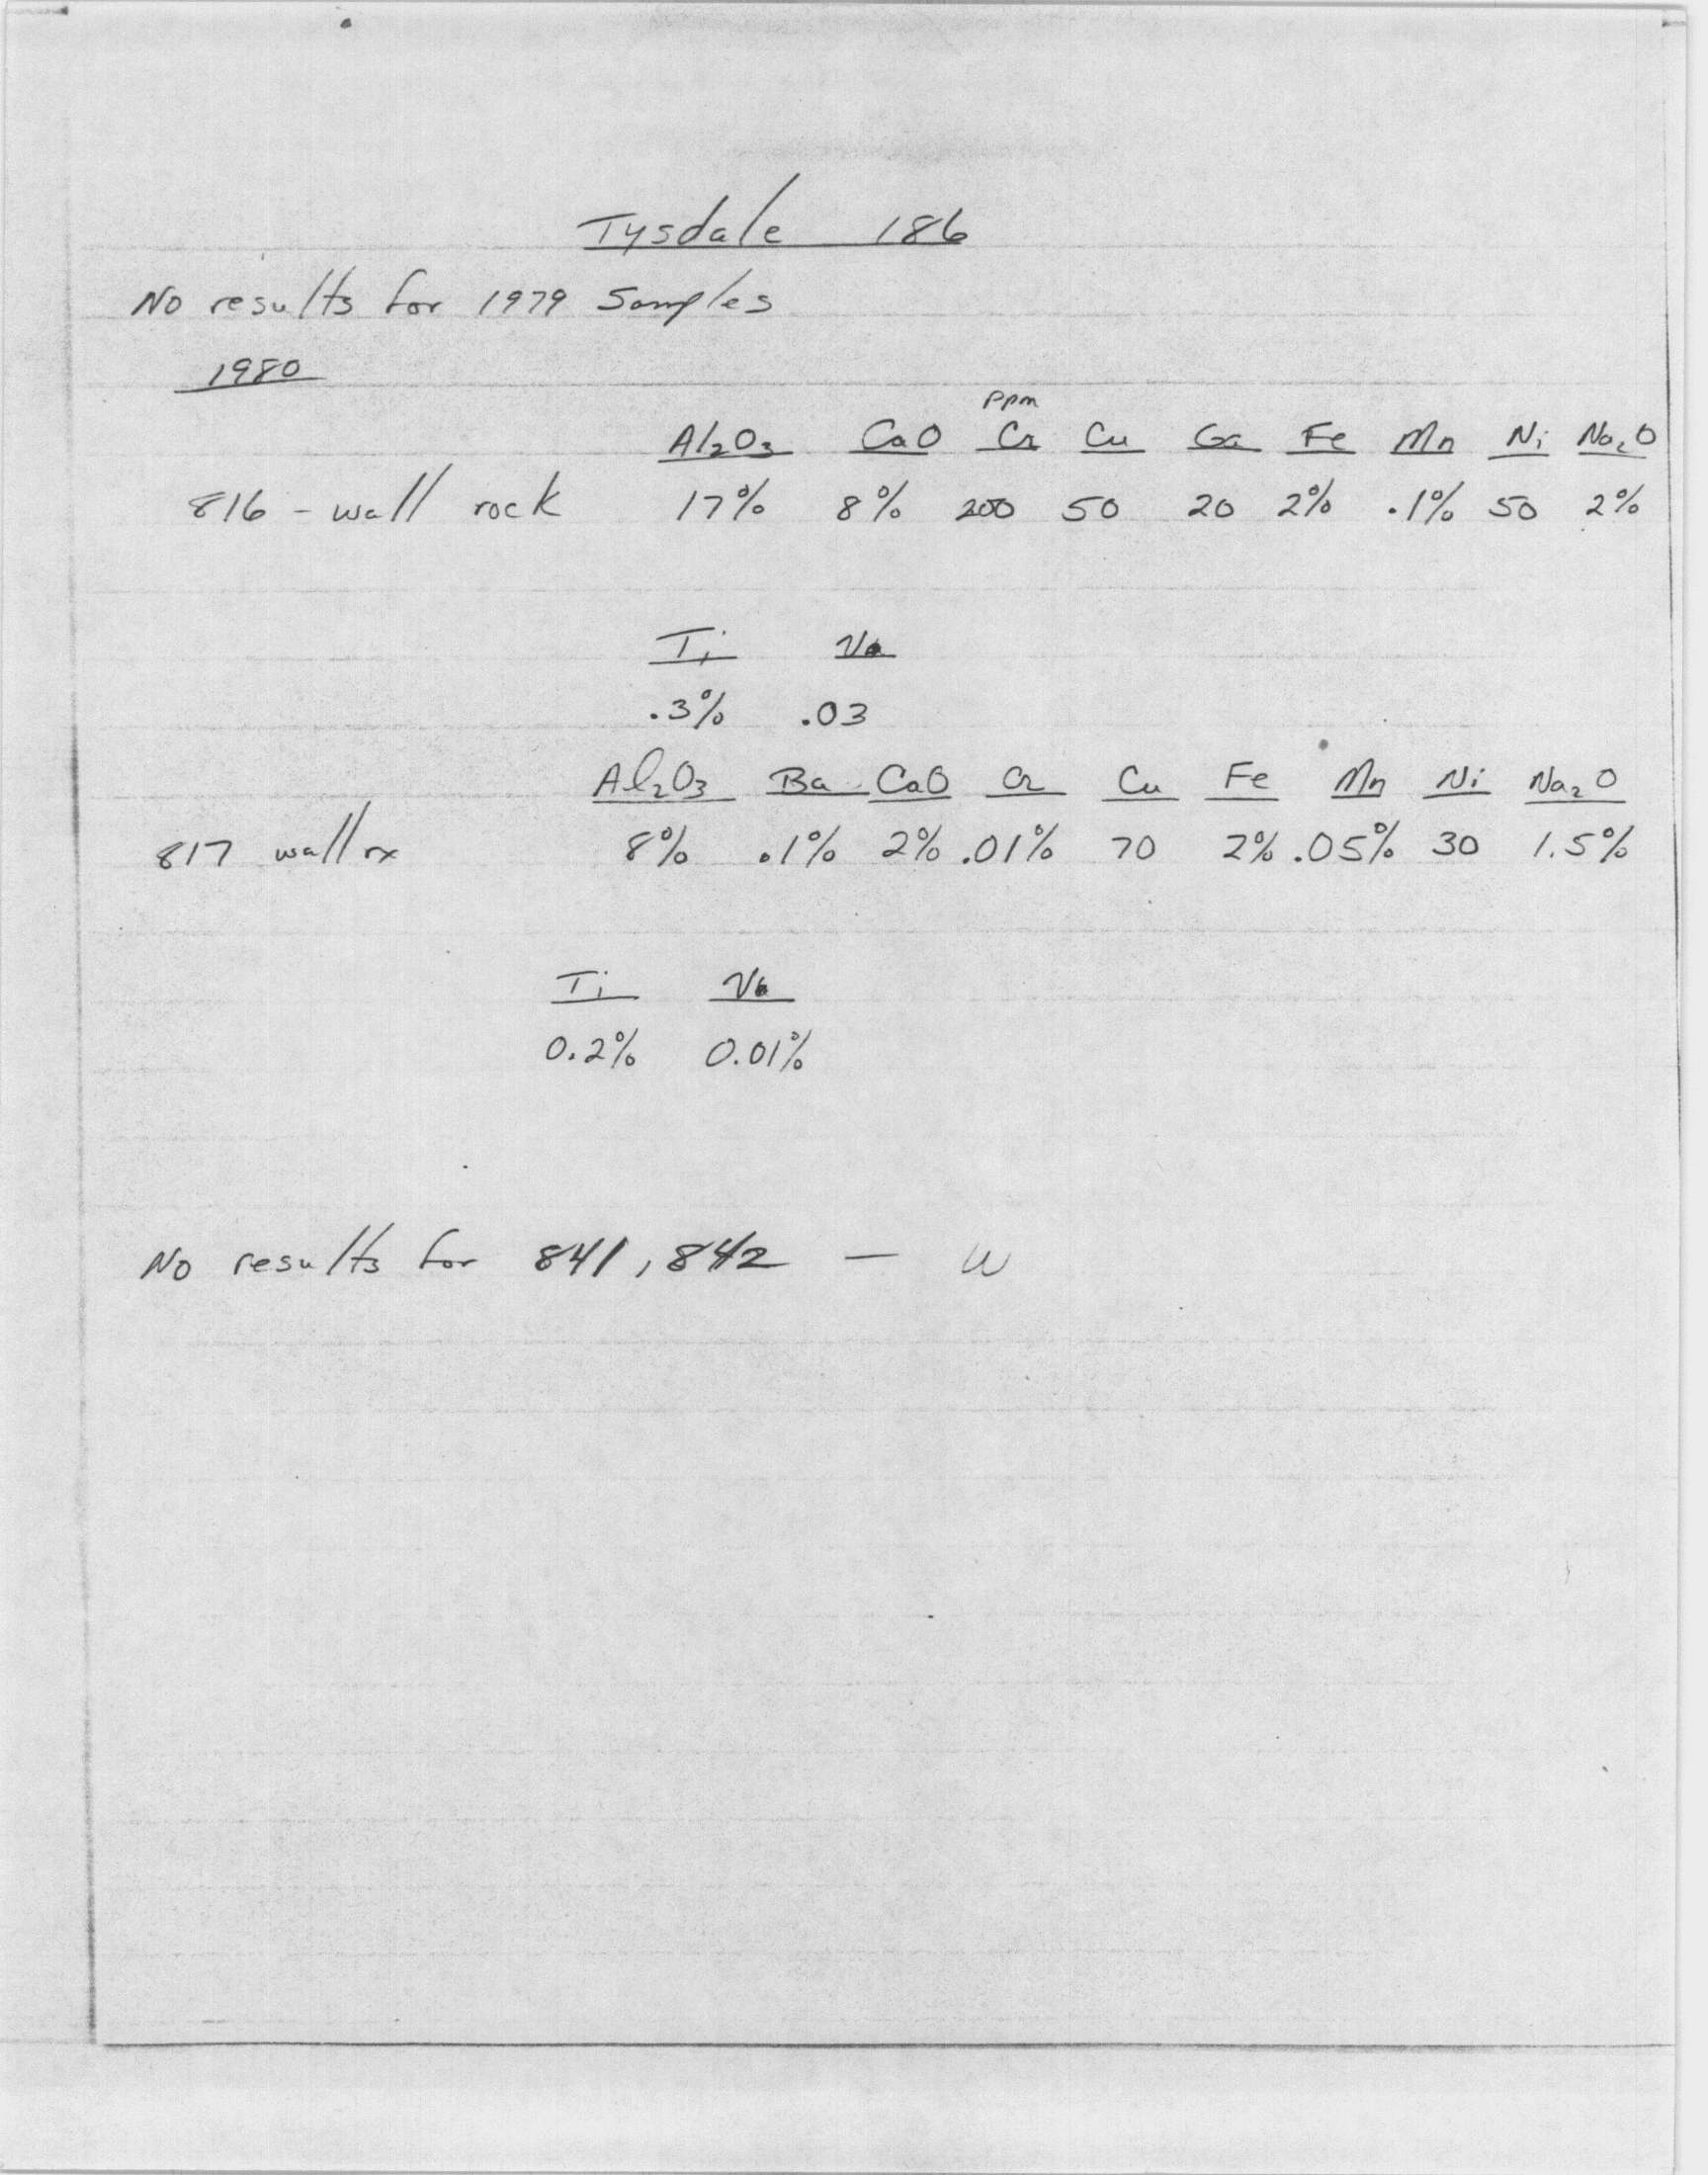 Tysdale 186
No results for 1979 Samples
1980
ppm
Al₂O₃ CaO Cr Cu Ga Fe Mn Ni Na₂O
816 - wall rock 17% 8% 200 50 20 2% .1% 50 2%
Ti V
.3% .03
Al₂O₃ Ba CaO Cr Cu Fe Mn Ni Na₂O
817 wall rx 8% .1% 2% .01% 70 2% .05% 30 1.5%
Ti V
0.2% 0.01%
No results for 841, 842 — W